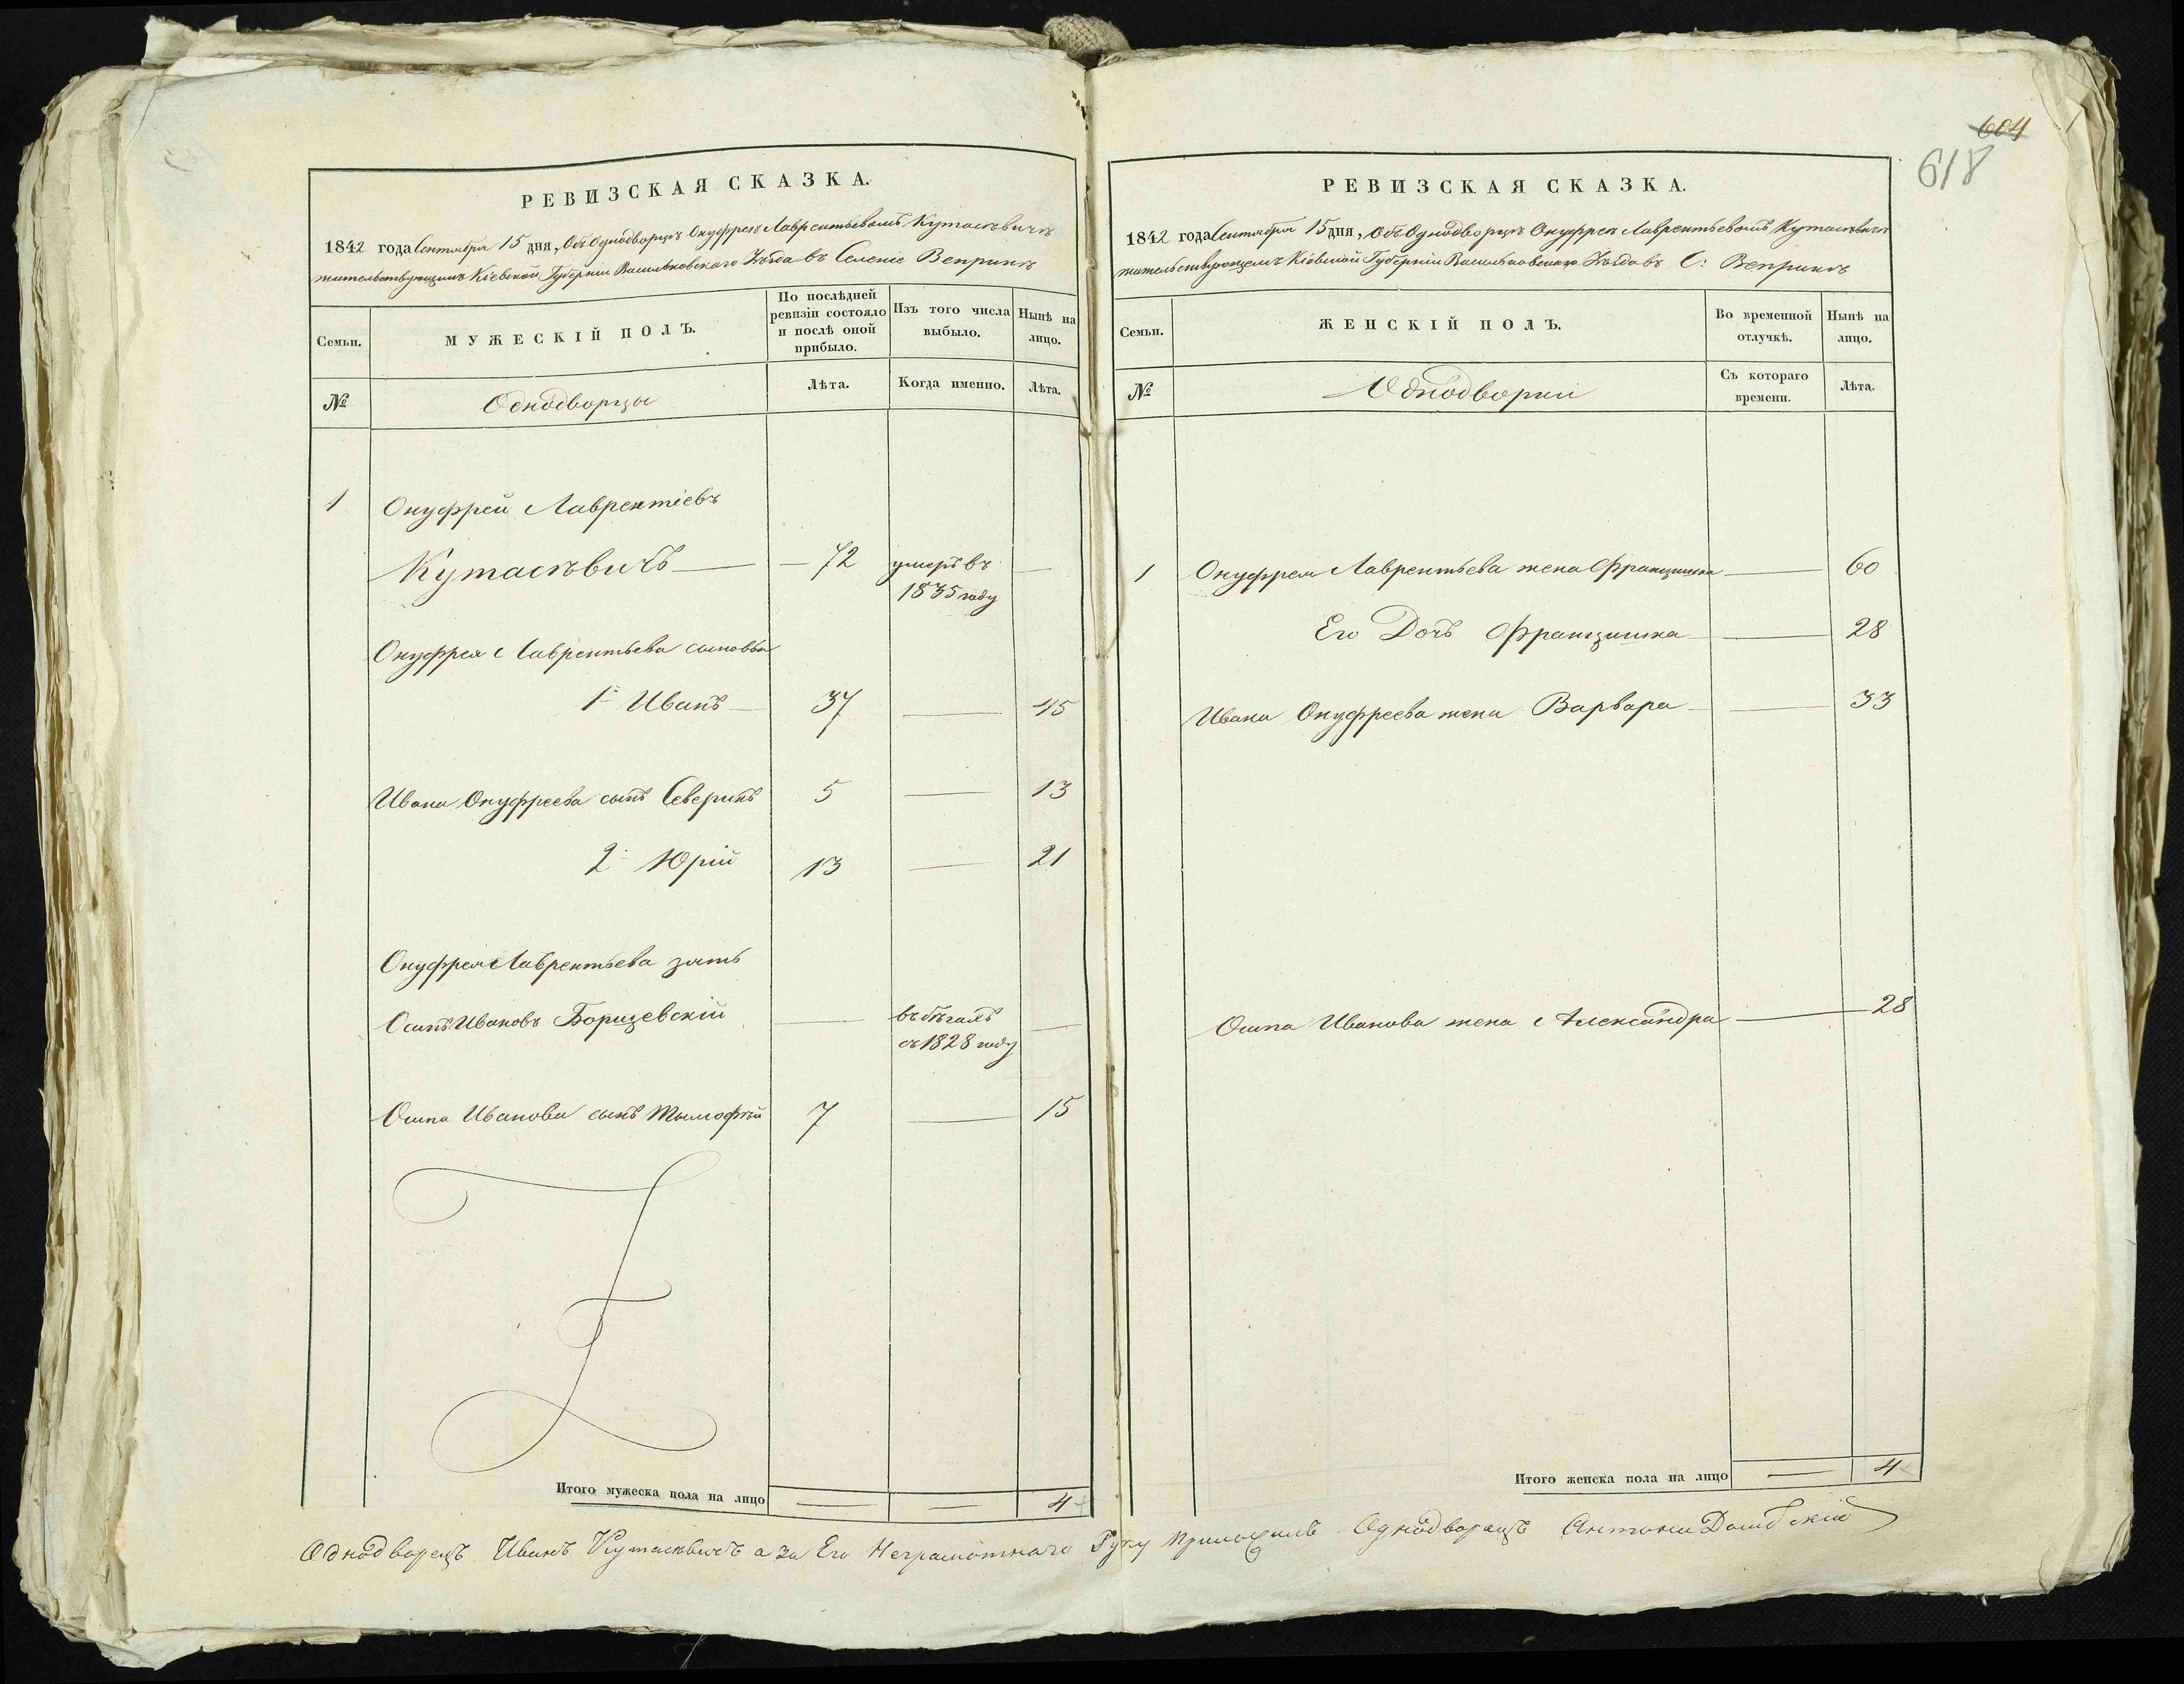 604
618
РЕВИЗСКАЯ СКАЗКА.
1842 года Сентября 15 дня, Объ Однодворцѣ Онуфреѣ Лаврентьевомъ Кутасѣвичѣ
жительствующемъ Кіевской Губерніи Васильковскаго Уѣзда въ Селеніе Веприкѣ
Семьи.
МУЖЕСКІЙ ПОЛЪ.
По послѣдней ревизіи состояло и послѣ оной прибыло.
Изъ того числа выбыло.
Нынѣ на лицо.
№
Однодворцы
Лѣта.
Когда именно.
Лѣта.
1 Онуфрей Лаврентіевъ
Кутасѣвичъ — 72 умеръ въ —
1835 году
Онуфрея Лаврентьева сыновья
1й Иванъ 37 — 45
Ивана Онуфреева сынъ Северинъ 5 — 13
2й Юрій 13 — 21
Онуфрея Лаврентьева зять
Осипъ Ивановъ Борщевскій — въ бѣгахъ —
съ 1828 году
Осипа Иванова сынъ Тымофѣй 7 — 15
Итого мужеска пола на лицо — — 4
РЕВИЗСКАЯ СКАЗКА.
1842 года Сентября 15 дня, Объ Однодворцѣ Онуфреѣ Лаврентьевомъ Кутасѣвичѣ
жительствующемъ Кіевской Губерніи Васильковскаго Уѣзда въ С: Веприкѣ
Семьи.
ЖЕНСКІЙ ПОЛЪ.
Во временной отлучкѣ.
Нынѣ на лицо.
№
Однодворки
Съ котораго времени.
Лѣта.
1 Онуфрея Лаврентьева жена Францишка — 60
Его Дочь Францишка — 28
Ивана Онуфреева жена Варвара — 33
Осипа Иванова жена Александра — 28
Итого женска пола на лицо — 4
Однодворецъ Иванъ Кутасѣвичъ а за Его Неграмотнаго Руку приложилъ Однодворецъ Антони